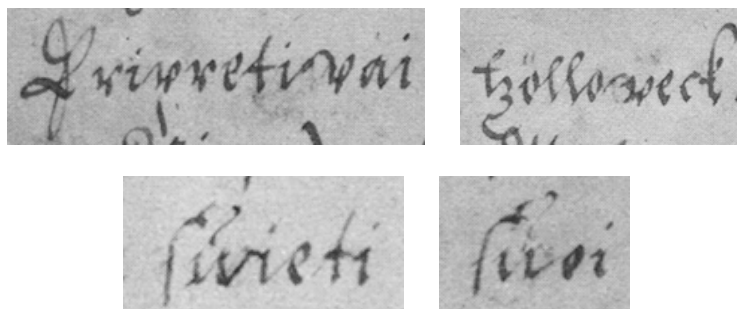 Privretiwai tzölloweck
ſwieti ſwoi